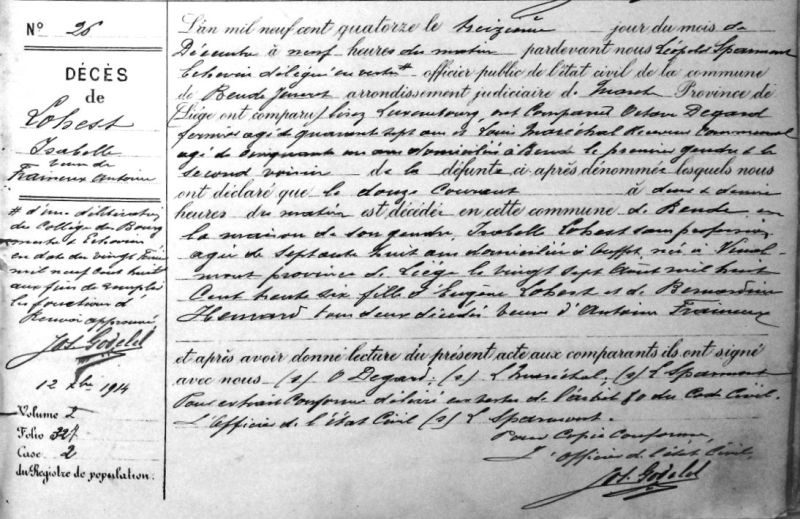 N° 26
DÉCÈS
de
Lohest
Isabelle
veuve de
Fraineux Antoine
# d'une délibération
du Collège des Bourg
mestre & Echevins
en date du vingt
mil neuf cent huit
aux fins de remplir
les fonctions d'
Renvoi approuvé
Jos. Godelel
12 Xbre 1914
Volume 2
Folio 327
Case 2
du Registre de population.
L'an mil neuf cent quatorze le treizième jour du mois de
Décembre à neuf heures du matin pardevant nous Léopold Sparmont
Echevin délégué en vertu # officier public de l'état civil de la commune
de Bende Jenneret arrondissement judiciaire de Marche Province de
(Liège ont comparu) lisez Luxembourg, ont Comparu Octave Degard
fermier agé de quarante sept ans et Louis Maréchal Receveur Communal
agé de cinquante un ans domiciliés à Bende le premier gendre & le
second voisin de la défunte ci après dénommée lesquels nous
ont déclaré que le douze Courant à deux & demie
heures du matin est décédée en cette commune de Bende en
la maison de son gendre, Isabelle Lohest sans profession
agée de septante huit ans domiciliée à Ouffet, née à Vinal-
mont province de Liège le vingt sept Août mil huit
Cent trente six fille d'Eugène Lohest et de Bernardine
Hennard tous deux décédés veuve d'Antoine Fraineux
et après avoir donné lecture du présent acte aux comparants ils ont signé
avec nous (s) O Degard; (s) L Maréchal; (s) L Sparmont
Pour extrait Conforme délivré en vertu de l'article 80 du Code Civil.
L'Officier de l'état Civil (s) L Sparmont.
Pour Copie Conforme,
L'officier de l'état Civil,
Jos. Godelel